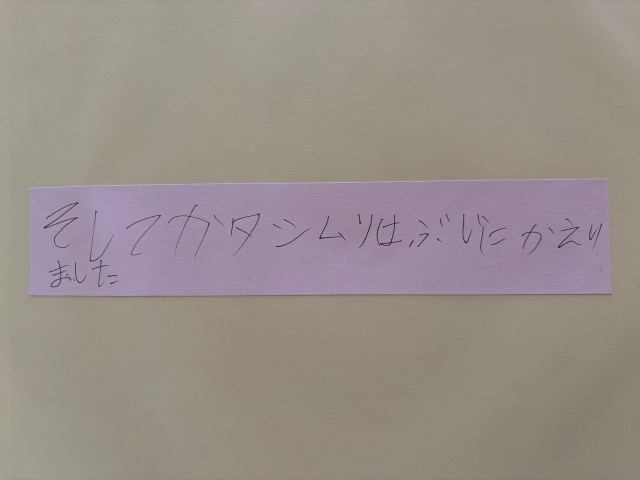 そしてカタシムリは、ぶじにかえり
ました